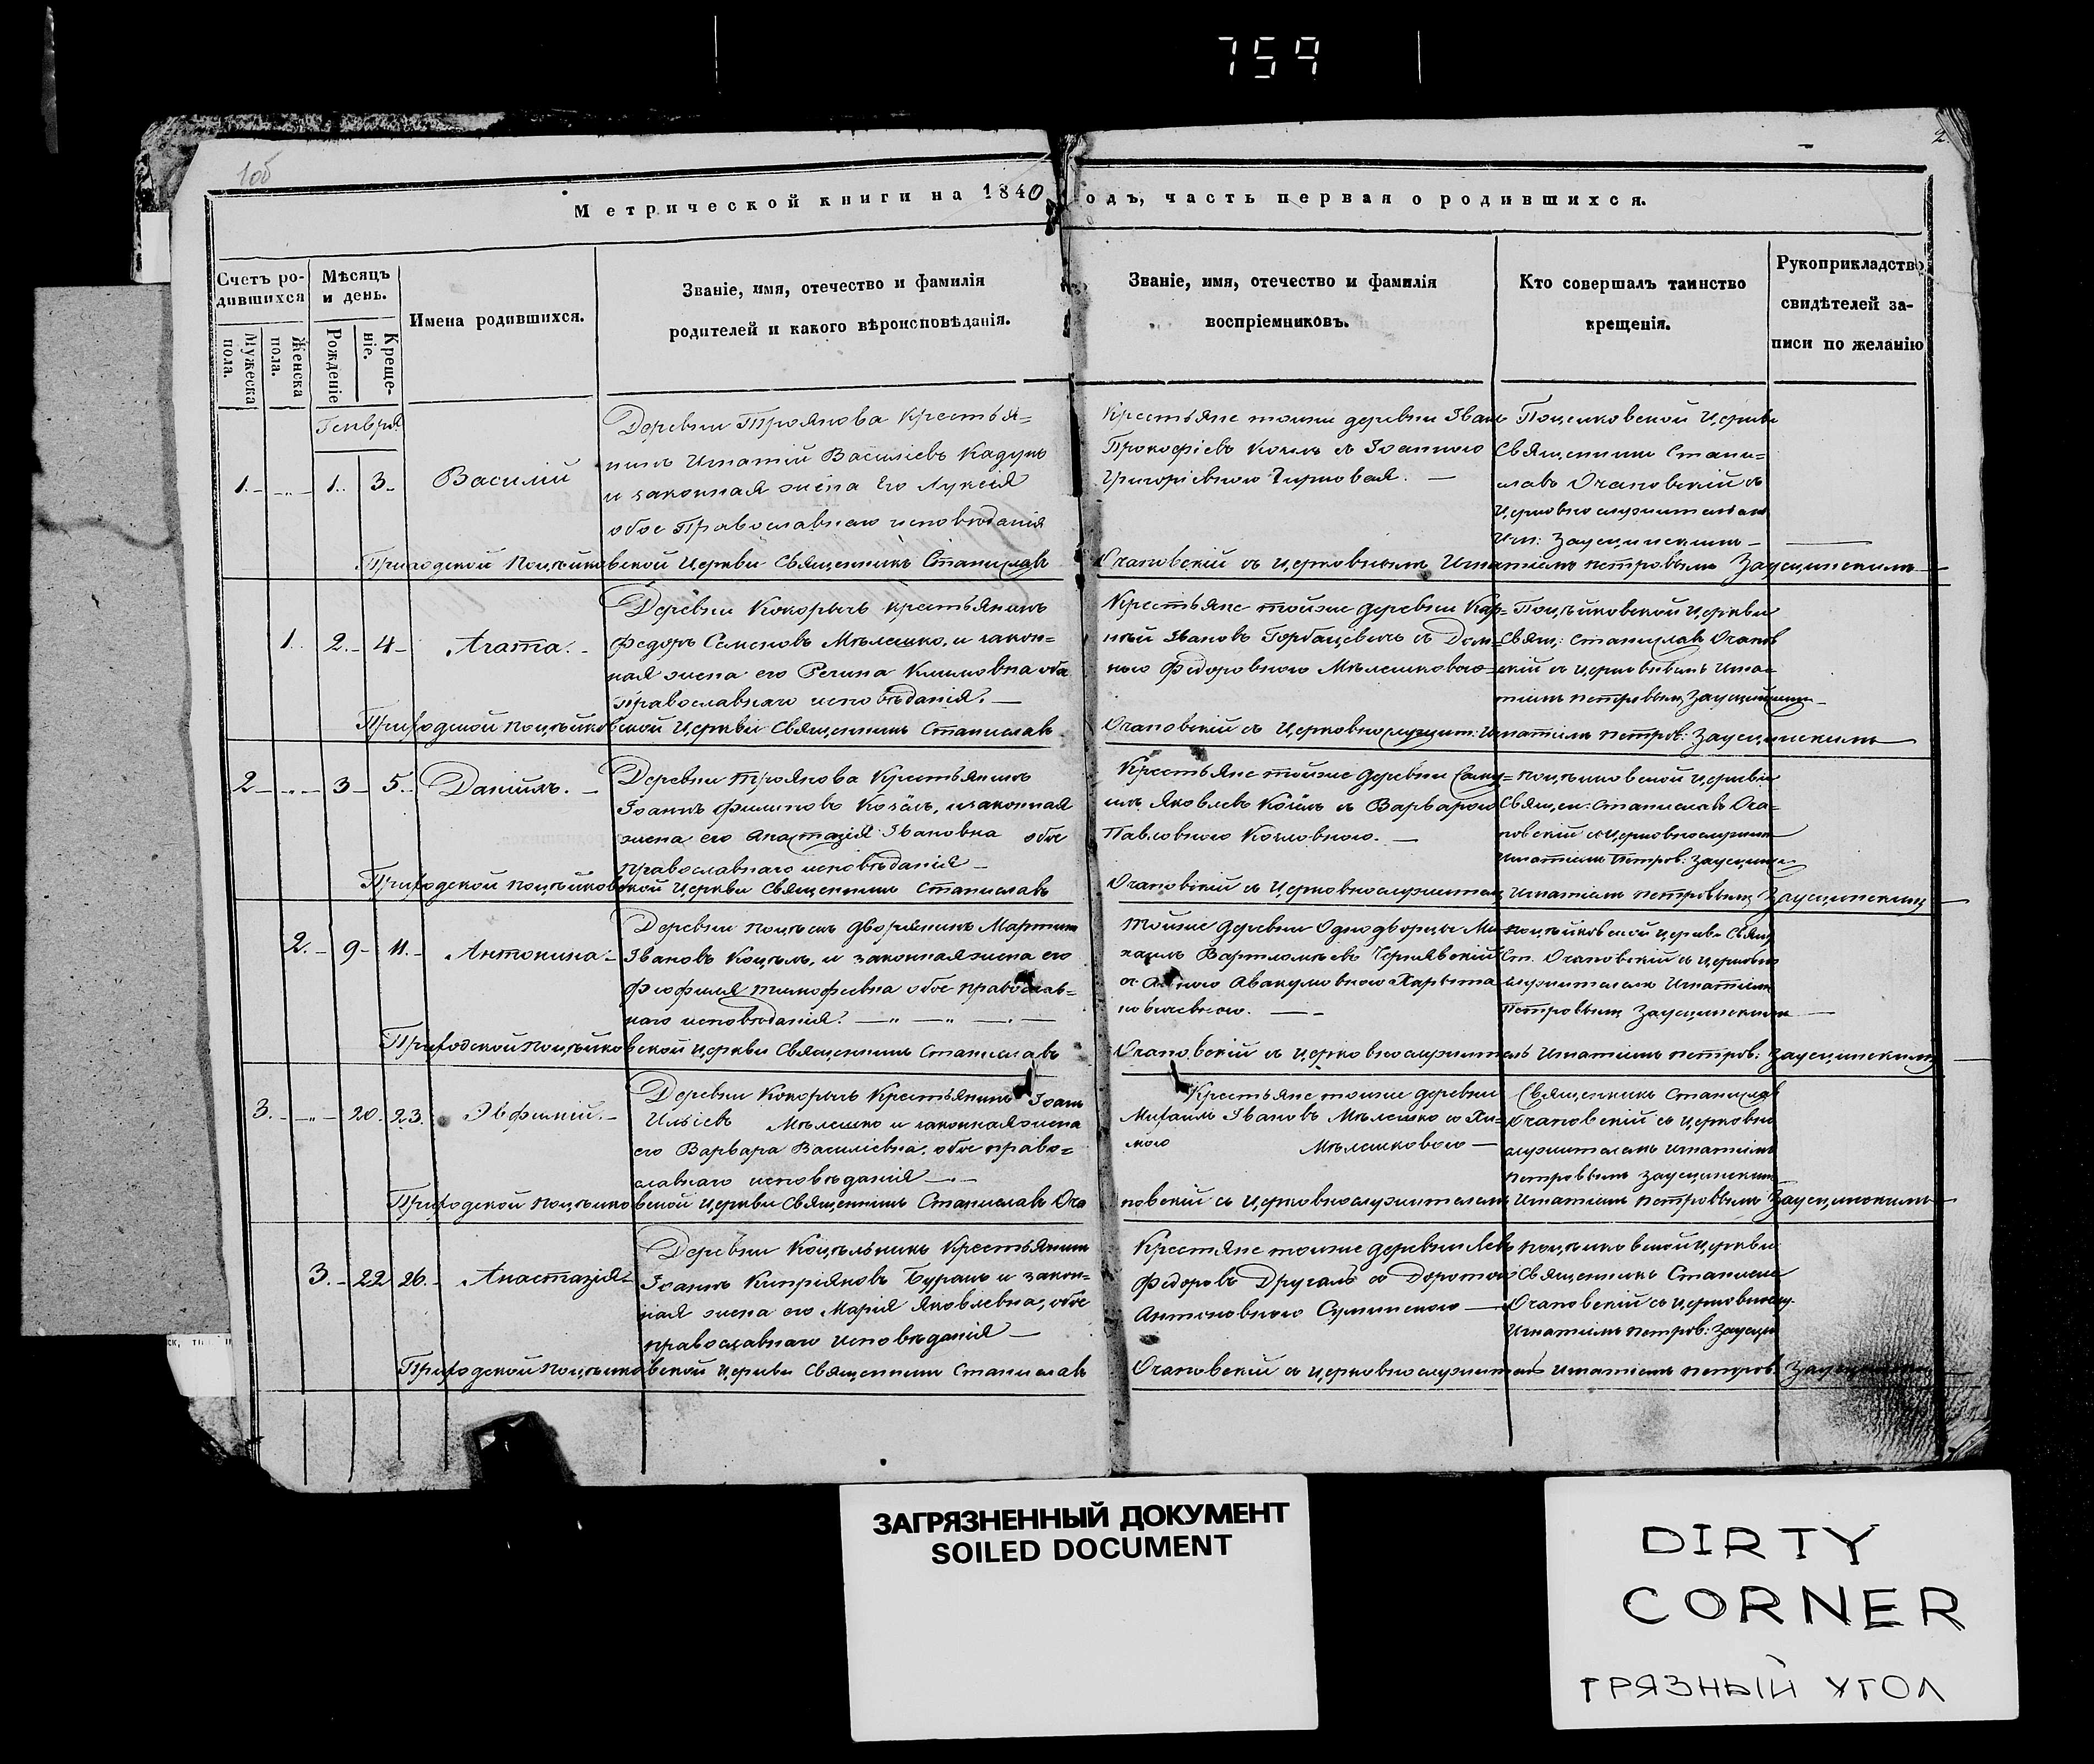 759
1об
2.
Метрической книги на 1840 годъ, часть первая о родившихся.
Счетъ ро-
дившихся
Мужеска пола.
Женска пола.
Мѣсяцъ
и день.
Рожденіе
Креще-
ніе.
Имена родившихся.
Званіе, имя, отечество и фамилія
родителей и какого вѣроисповѣданія.
Званіе, имя, отечество и фамилія
воспріемниковъ.
Кто совершалъ таинство
крещенія.
Рукоприкладство
свидѣтелей за-
писи по желанію
Генваря
1. 1. 3. Василій
Деревни Троянова Крестья=
нинъ Игнатій Василіевъ Кадукъ
и законная жена Его Лукеія
обое Православнаго исповѣданія
Крестьяне тойже деревни Іванъ
Прокофіевъ Козелъ съ Іоанною
Григоріевною
Поцейковской Церкви
Священникъ Стани=
славъ Очаповскій съ
Церковнослужителемъ
Игн: Заусцинскимъ
Приходской Поцѣйковской Церкви Священникъ Станиславъ Очаповскій съ Церковникомъ Игнатіемъ Петровымъ Заусцинскимъ
1. 2. 4. Агата.
Деревни Кокорычъ крестьянинъ
Федоръ Семеновъ Мѣлешко, и закон=
ная жена его Регина Климовна оба
православнаго исповѣданія.
Крестьяне тойже деревни Кор=
нѣй Ивановъ Горбацевичъ съ Дом=
ною Федоровною Мѣлешковою
Поцѣйковской Церкви
Свящ: Станиславъ Очапов
скій съ Церковникомъ Игна=
тіемъ Петровымъ Заусцинскимъ
Приходской Поцѣйковской Церкви Священникъ Станиславъ Очаповскій съ Церковнослужит: Игнатіемъ Петров: Заусцинскимъ
2 3 5. Даніилъ.
Деревни Троянова Крестьянинъ
Іоаннъ Филиповъ Козёлъ, и законная
жена его Анастазія Івановна обое
православнаго исповѣданія
Крестьяне тойже деревни Саму=
илъ Яковлевъ Козёлъ съ Варварою
Павловною Козловною.
Поцѣйковской Церкви
Священ. Станиславъ Оча=
повскій съ Церковнослужит
Игнатіемъ Петров: Заусцинс
Приходской Поцѣйковской Церкви Священникъ Станиславъ Очаповскій съ Церковнослужителемъ Игнатіемъ Петровымъ Заусцинскимъ
2. 9 11. Антонина
Деревни Поцѣекъ дворянинъ Мартинъ
Івановъ Коцѣлъ, и законная жена его
Феофилія Тимофеевна обое православ=
наго исповѣданія.
Тойже деревни Однодворцы Ми
хаилъ Варѳоломѣевъ Чернявскій
съ Анною Авакумовною Харыто
новичевною.
Поцѣйковской Церкви Свящ
Ст. Очаповскій съ Церковно
служителемъ Игнатіемъ
Петровымъ Заусцинскимъ
Приходской Поцѣйковской Церкви Священникъ Станиславъ Очаповскій съ Церковнослужителемъ Игнатіемъ Петров: Заусцинскимъ
3. 20. 23. Эвфимій.
Деревни Кокорычъ Крестьянинъ Іоанъ
Ильіевъ Мѣлешко и законная жена
его Варвара Василіевна. обое право=
славнаго исповѣданія
Крестьяне тойже деревни
Михаилъ Івановъ Мѣлешко со
Мѣлешковою
Священникъ Станиславъ
Очаповскій съ Церковно
служителемъ Игнатіемъ
Петровымъ Заусцинским
Приходской Поцѣйковской Церкви Священникъ Станиславъ Очаповскій съ Церковнослужителемъ Игнатіемъ Петровымъ Заусцинскимъ
3. 22 26. Анастазія
Деревни Коцѣльники Крестьянинъ
Іоаннъ Кипріяновъ Буракъ и закон=
ная жена его Марія Яковлевна, обое
православнаго исповѣданія
Крестяне тойже деревни Левъ
Федоровъ Другакъ со Доротою
Антоновною
Поцѣйковской Церкви
Священникъ Станислав
Очаповскій съ Церковнослу.
Игнатіемъ Петров: Заусци
Приходской Поцѣйковской Церкви Священникъ Станиславъ Очаповскій съ Церковнослужителемъ Игнатіемъ Петров.
ЗАГРЯЗНЕННЫЙ ДОКУМЕНТ
SOILED DOCUMENT
DIRTY
CORNER
ГРЯЗНЫЙ УГОЛ